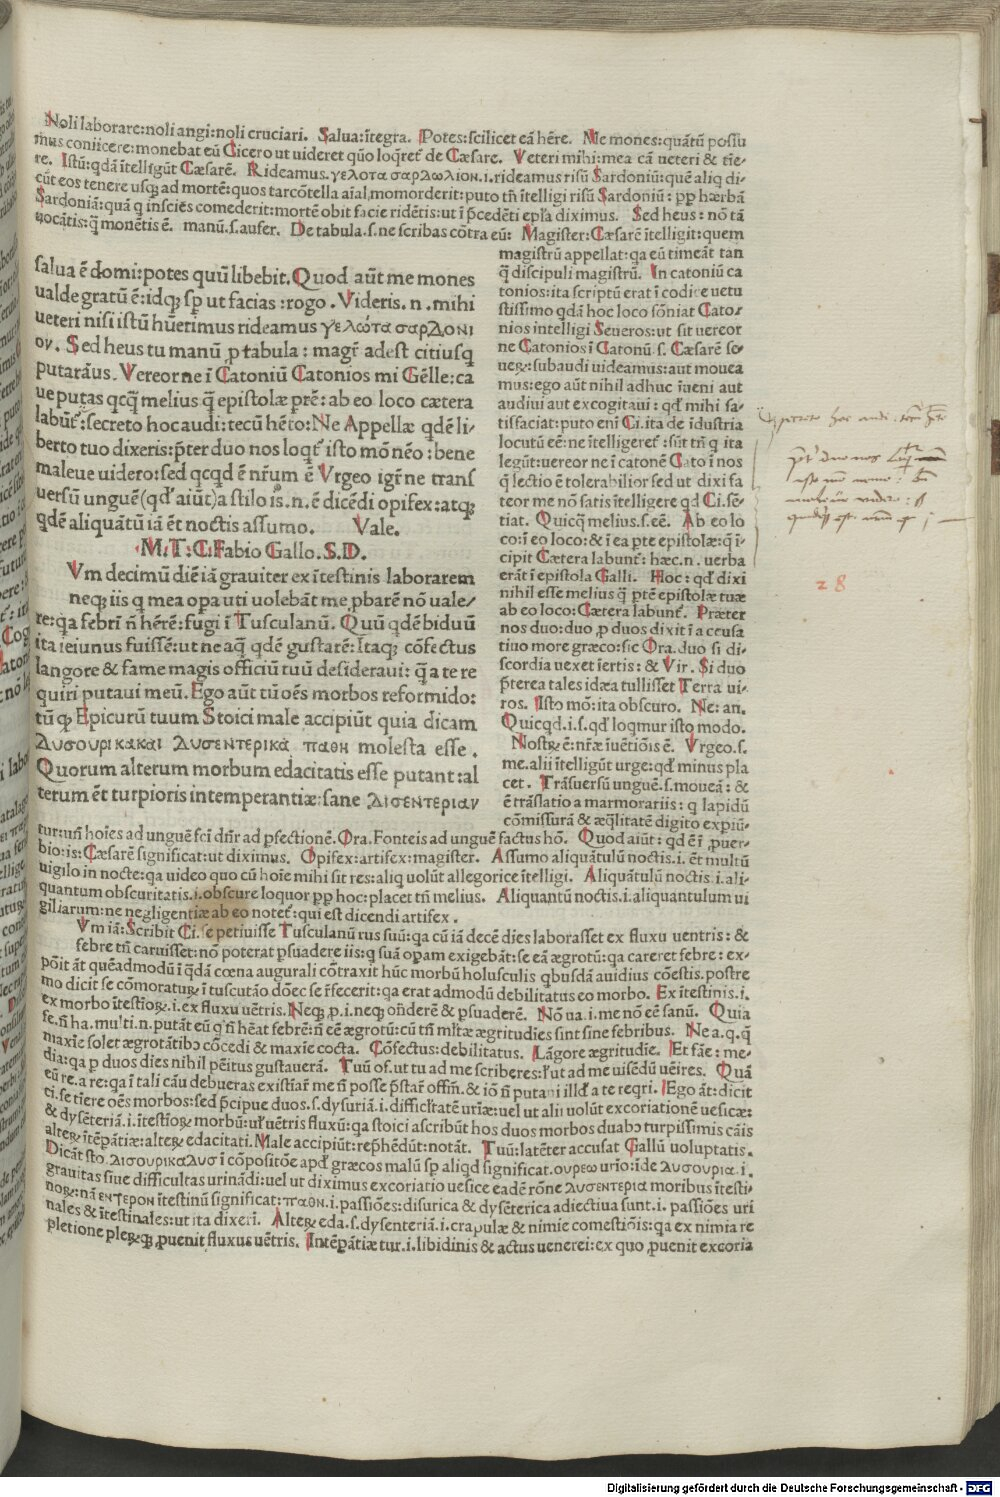 Noli laborare:noli angi:noli cruciari. Salua:ĩtegra. Potes:scilicet eã hẽre. Me mones:quãtũ possu
mus coniicere:monebat eũ Cicero ut uideret quõ loq̃ret̃ de Cæsare. Veteri mihi:mea cã ueteri & tñe-
re. Istũ:qdã ĩtelligũt Cæsarẽ. Rideamus.γελοτα σαρδωλιον.i.rideamus risũ Sardoniũ:quẽ aliq di-
cũt eos tenere usq; ad mortẽ:quos tarcõtella aĩal momorderit:puto tñ ĩtelligi risũ Sardoniũ: ꝓp hærbã
Sardoniã:quã q̃ insciẽs comederit:mortẽ obit facie ridẽtis:ut ĩ p̃cedẽti epĺa diximus. Sed heus: nõ tã
uocãtis:q̃ monẽtis ẽ. manũ.s.aufer. De tabula.s.ne scribas cõtra eũ: Magister:Cæsarẽ ĩtelligit:quem
magistrũ appellat:qa eũ timeãt tan
q̃ discipuli magistrũ. In catoniũ ca
tonios:ita scriptũ erat ĩ codice uetu
stissimo qdã hoc loco sõniat Cato-
nios intelligi Seueros:ut sit uereor
ne Catonios ĩ Catonũ.s. Cæsarẽ se-
ueꝝ:subaudi uideamus:aut mouea
mus:ego aũt nihil adhuc ĩueni aut
audiui aut excogitaui: qd' mihi sa-
tisfaciat:puto eni Ci.ita de ĩdustria
locutũ eẽ:ne ĩtelligeret̃ :sũt tñ q ita
legũt:uereor ne ĩ catonẽ Cato ĩ nos
q̃ lectio ẽ tolerabilior sed ut dixi fa
teor me nõ satis ĩtelligere qd Ci.sẽ-
tiat. Quicq̃ melius.s.eẽ. Ab eo lo
co:ĩ eo loco:& ĩ ea pte epistolæ:q̃ ĩ-
cipit Cætera labunt̃: hæc.n. uerba
erãt ĩ epistola Galli. Hoc: qd' dixi
nihil esse melius q̃ ptẽ epistolæ tuæ
ab eo loco:Cætera labunt̃. Præter
nos duo:duo ꝓ duos dixit ĩ accusa
tiuo more græco:sic Ora.duo si di-
scordia uexet ĩertis: & Vir. Si duo
p̃terea tales idæa tullisset Terra ui-
ros. Isto mõ:ita obscuro. Ne: an.
Quicqd.i.s.qd' loqmur isto modo.
Nostꝝ ẽ:nr̃æ ĩuẽtiõis ẽ. Vrgeo.s.
me.alii ĩtelligũt urge:qd' minus pla
cet. Trãsuersũ unguẽ.s.mouea: &
ẽ trãslatio a marmorariis: q lapidũ
cõmissurã & æq̃litatẽ digito expiũ-
salua ẽ domi:potes quũ libebit.Quod aũt me mones
ualde gratũ ẽ:idq; sp ut facias :rogo . Videris. n .mihi
ueteri nisi istũ hũerimus rideamus γελώτα σαρδονι
ον. Sed heus tu manũ ꝓ tabula : magr̃ adest citiusq̃
putarãus.Vereor ne ĩ Catoniũ Catonios mi Gẽlle:ca
ue putas qcq̃ melius q̃ epistolæ prẽ: ab eo loco cætera
labũt̃:secreto hoc audi:tecũ hẽto:Ne Appellæ qdẽ li-
berto tuo dixeris:p̃ter duo nos loqt̃ isto mõ nẽo : bene
maleue uidero:sed qcqd ẽ nr̃um ẽ Vrgeo igr̃ ne transſ
uersũ unguẽ(qd' aiũt)a stilo is.n.ẽ dicẽdi opifex:atq;
qdẽ aliquãtũ iã ẽt noctis assumo. Vale.
M.T.C.Fabio Gallo.S.D.
Vm decimũ diẽ iã grauiter ex ĩtestinis laborarem
neq; iis q mea opa uti uolebãt me ꝓbarẽ nõ uale-
re:qa febrĩ ñ hẽrẽ:fugi ĩ Tusculanũ. Quũ qdẽ biduũ
ita ieiunus fuissẽ:ut ne aq̃ qdẽ gustarẽ:Itaq; cõfectus
langore & fame magis officiũ tuũ desideraui: q̃ a te re
quiri putaui meũ. Ego aũt tũ oẽs morbos reformido:
tũ q̃ Epicurũ tuum Stoici male accipiũt quia dicam
δυσουρικακαι δυσεντερικὰ παθη molesta esse .
Quorum alterum morbum edacitatis esse putant:al
terum ẽt turpioris intemperantiæ:sane δισεντεριαν
tur:unñ hoĩes ad unguẽ fci dñr ad pfectionẽ. Ora. Fonteis ad unguẽ factus hõ. Quod aiũt: qd ẽ ĩ ꝓuer-
bio:is:Cæsarẽ significat:ut diximus. Opifex:artifex:magister. Assumo aliquãtulũ noctis.i. ẽt multũ
uigilo in nocte:qa uideo quo cũ hoĩe mihi sit res:aliq uolũt allegorice ĩtelligi. Aliquãtulũ noctis.i.ali-
quantum obscuritatis.i.obscure loquor ꝓp hoc:placet tñ melius. Aliquantũ noctis.i.aliquantulum ui
giliarum:ne negligentiæ ab eo notet̃:qui est dicendi artifex .
Vm iã:Scribit Ci.se petiuisse Tusculanũ rus suũ:qa cũ iã decẽ dies laborasset ex fluxu uentris: &
febre tñ caruisset:nõ poterat psuadere iis:q suã opam exigebãt:se eã ægrotũ:qa careret febre: ex-
põit ãt quẽadmodũ ĩ qdã cœna augurali cõtraxit hũc morbũ holusculis qbusdã auidius cõestis.postre
mo dicit se cõmoratuꝝ ĩ tuscutão dõec se r̃fecerit:qa erat admodũ debilitatus eo morbo. Ex ĩtestinis.i.
ex morbo ĩtestioꝝ.i.ex fluxu uẽtris. Neq; ꝓ.i.neq; oñderẽ & psuaderẽ. Nõ ua.i.me nõ eẽ sanũ. Quia
fe.ñ ha.multi.n.putãt eũ q ñ hẽat febrẽ:ñ eẽ ægrotũ:cũ tñ ml̃tæ ægritudies sint sine febribus. Ne a.q.q̃
maxie solet ægrotãtibo cõcedi & maxie cocta. Cõfectus:debilitatus. Lãgore ægritudie. Et fãe: me-
dia:qa p duos dies nihil pẽitus gustauerã. Tuũ of.ut tu ad me scriberes:l'ut ad me uisẽdũ uẽires. Quã
eũ re.a re:qa ĩ tali cãu debueras existiãr me ñ posse p̃stãr offm.& iõ ñ putaui illd' a te reqri. Ego ãt: dicit
ci.se tĩere oẽs morbos:sed p̃cipue duos.s.dysuriã.i.difficl'tatẽ urĩæ:uel ut alii uolũt excoriationẽ uesicæ:
& dysẽteriã.i.ĩtestioꝝ morbũ:ul' uẽtris fluxũ:qa stoici ascribũt hos duos morbos duabꝰ turpissimis cãis
alteꝝ ĩtẽpãtiæ:alteꝝ edacitati. Male accipiũt:rep̃hẽdũt:notãt. Tuũ:latẽter accusat Gallũ uoluptatis.
Dicãt sto.δισουρικα.δυσ ĩ cõpositõe apd' græcos malũ sp aliqd significat.ουρεω urio:ĩde δυσουρια.i.
grauitas siue difficultas urinãdi:uel ut diximus excoriatio uesice eadẽ rõne δυσεντερια moribus ĩtesti-
noꝝ:nã εντερον ĩtestinũ significat:παθη.i.passiões:disurica & dysẽterica adiectiua sunt.i. passiões uri
nales & ĩtestinales:ut ita dixeri. Alteꝝ eda.s.dysenteriã.i.crapulæ & nimie comestiõis:qa ex nimia re
pletione pleꝝq; ꝓuenit fluxus uẽtris. Intẽpãtiæ tur.i.libidinis & actus uenerei:ex quo ꝓuenit excoria
28
Digitalisierung gefördert durch die Deutsche Forschungsgemeinschaft - DFG